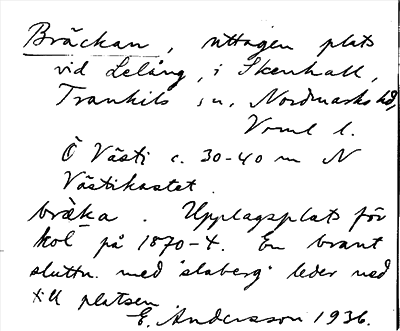 Bräckan, uttagen plats
vid Lelång, i Skenhall,
Trankils sn, Nordmarks hd,
Vrml l.
Ö Västi c. 30-40 m N
Västikastet.
bräka. Upplagsplats för
kol på 1870-t. En brant
sluttn. med slaberg leder ned
till platsen
E. Andersson 1936.